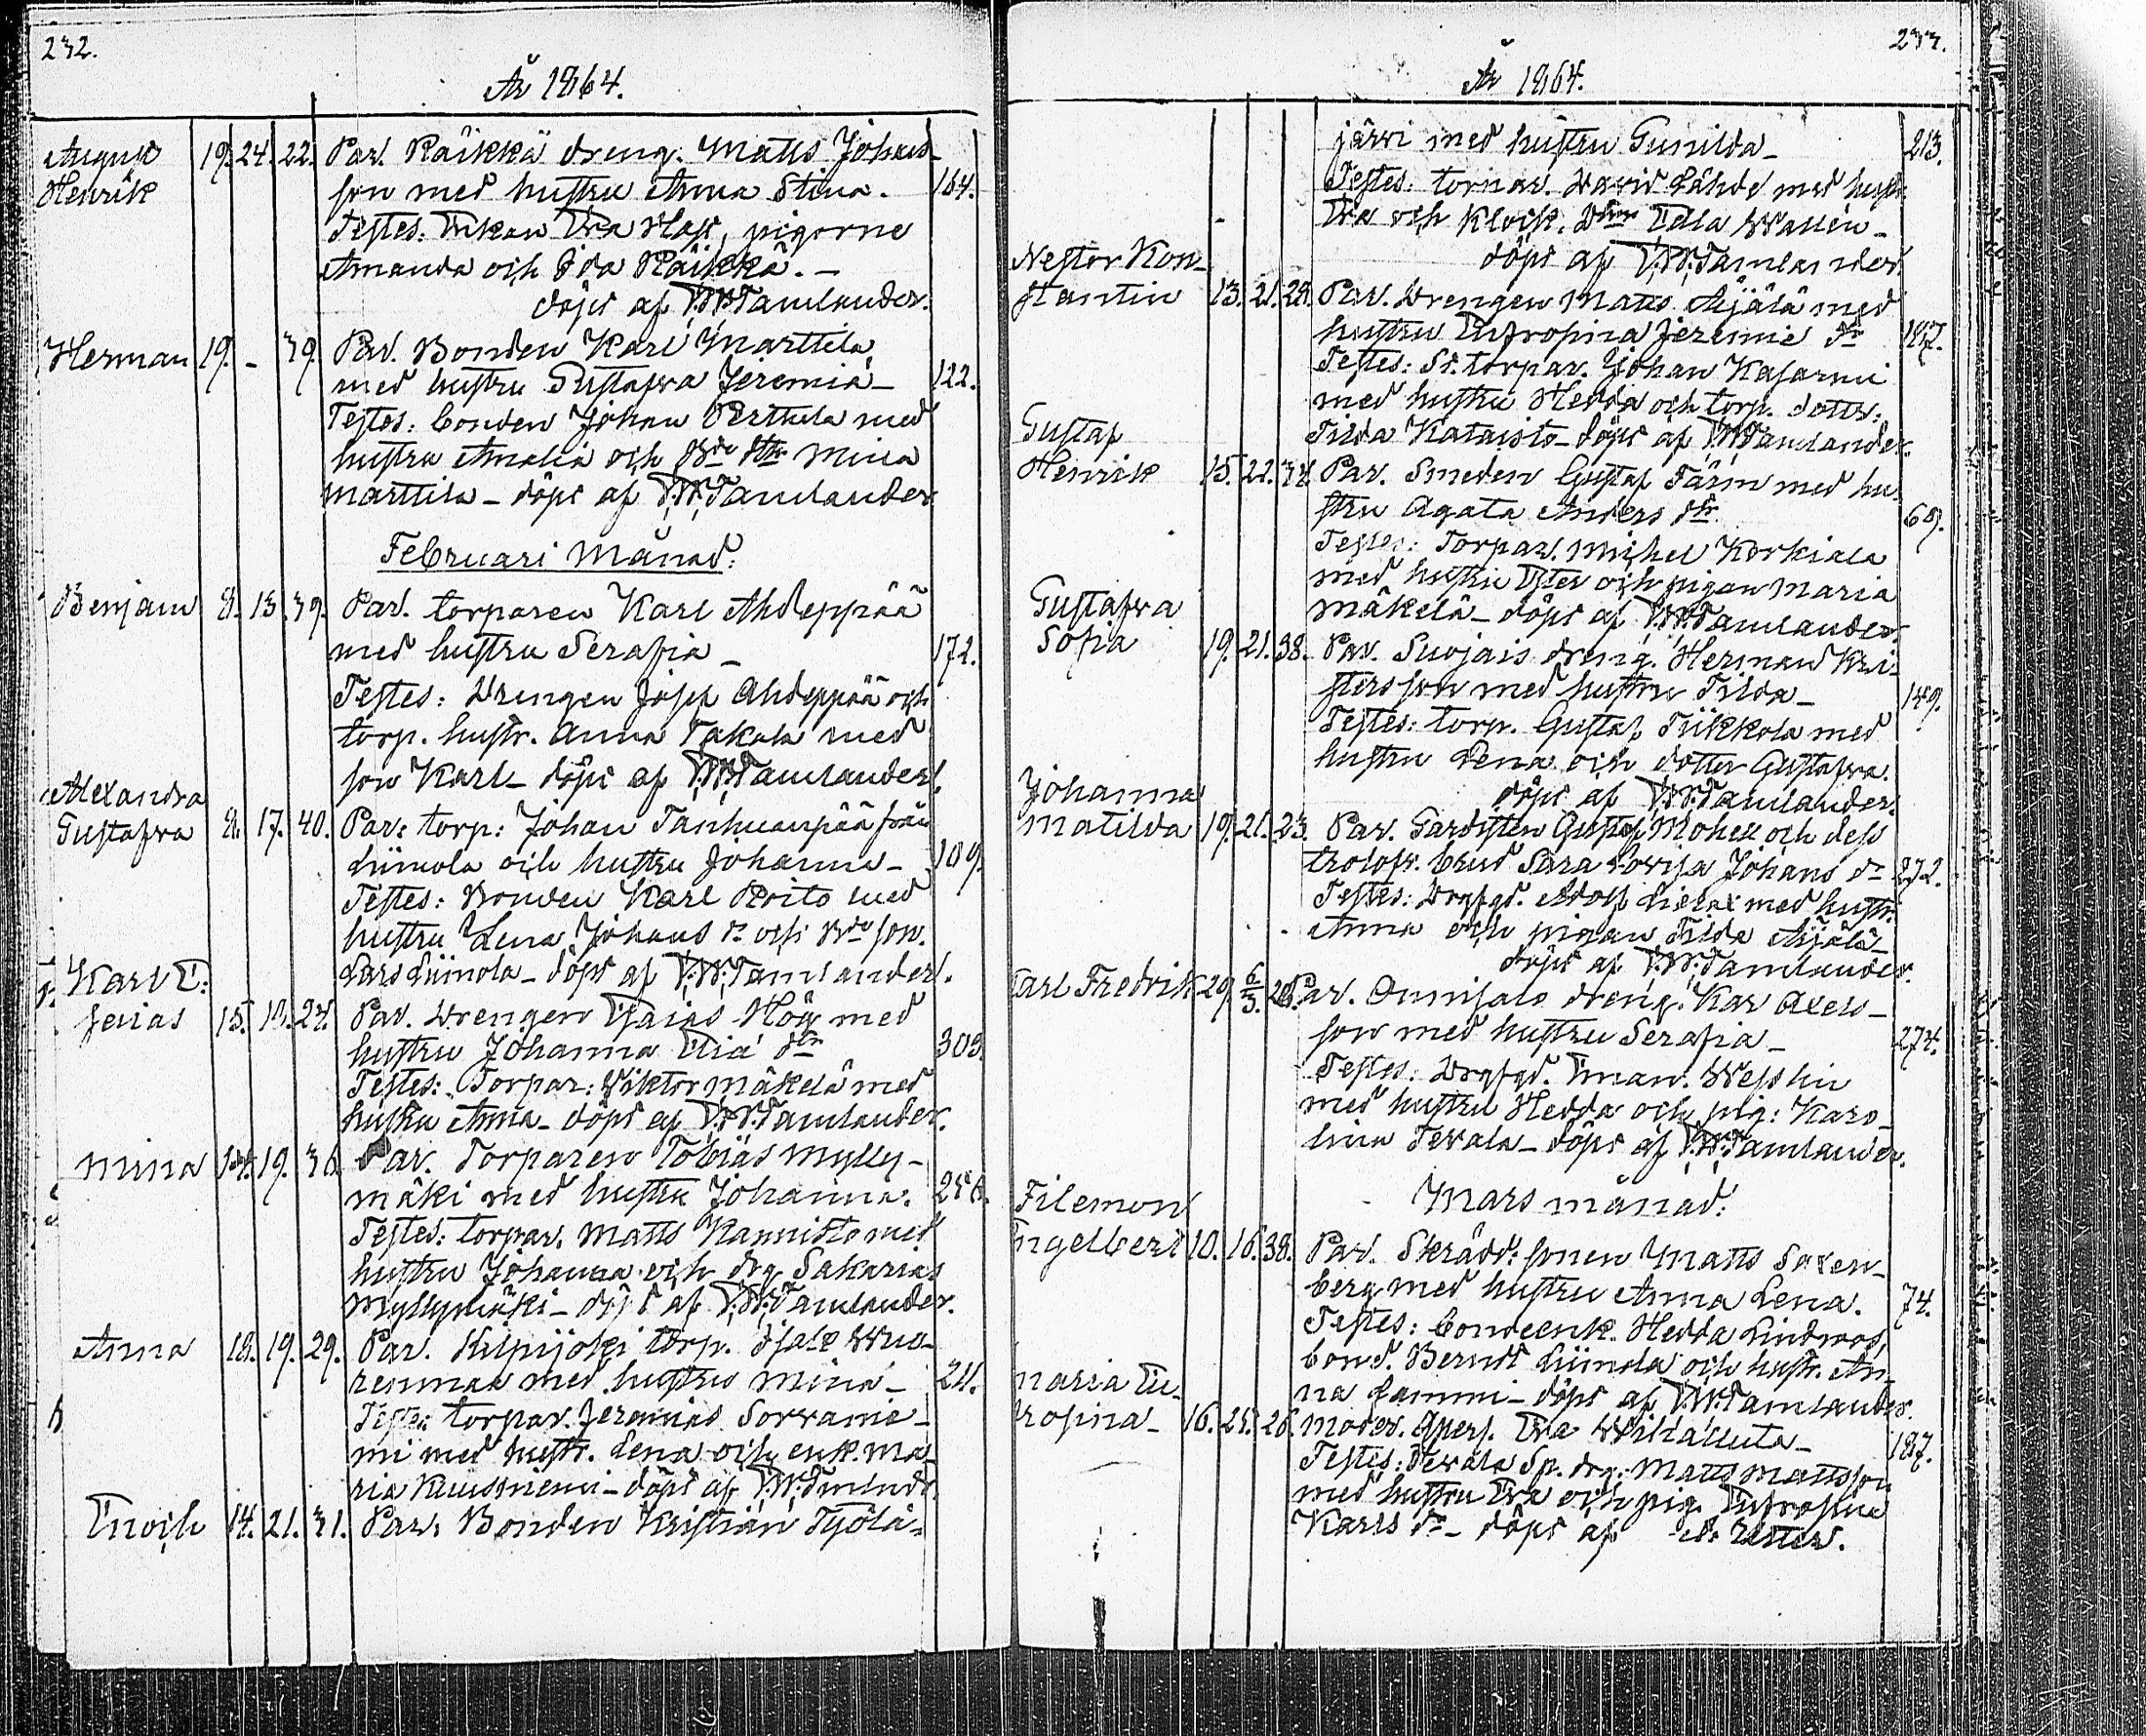 232.
År 1864.
August 19. 24. 22. Par. Räikkä dreng. Matts Johans-
Henrik son med hustru Anna Stina. 164.
Testes: Enkan Eva Hast, pigorne
Amanda och Ida Räikkä.
döpt af F.W. Tamlander.
Herman 19. - 39. Par. Bonden Karl Marttila
med hustru Gustafva Jeremia- 122.
Testes: bonden Johan Perttula med
hustru Amalia och Bde dtr Mina
Marttila - döpt af F.W. Tamlander
Februari Månad:
Benjam 8. 13. 39. Par. torparen Karl Ahdeppää
med hustru Serafia - 172.
Testes: Drengen Josef Ahdeppää och
torp. hustr. Anna Takala med
son Karl - döpt af F.W. Tamlander.
Alexandra
Gustafva 8. 17. 40. Par: torp: Johan Tanhuanpää från
Liinola och hustru Johanna - 109.
Testes: Bonden Karl Roito med
hustru Lena Johans dr och Bde son.
Lars Liinola - döpt af F.W. Tamlander.
Karl E:
senias 15. 18. 24. Par. Drengen Esaias Hög med
hustru Johanna Elia dtr 303.
Testes: Torpar: Viktor Mäkelä med
hustru Anna - döpt af F.W. Tamlander.
Mina 14. 19. 36. Par. Torparen Tobias Mylly-
mäki med hustru Johanna.
Testes: torpar. Matts Kannisto med
hustru Johanna och drg Sakarias
Myllymäki - döpt af F.W. Tamlander.
Anna 18. 19. 29. Par. Kilpijoki torp. Isak Wuo-
renmaa med hustru Mina - 24.
Testes torpar. Jeremias Sorvanie-
mi med hustr. Lena och enk. Ma-
ria Kuusniemi - döpt af F.W. Tmlndr.
Enoch 14. 21. 31. Par. Bonden Kristian Työlä-
233.
År 1864.
järvi med hustru Gunilda - 213.
Testes: tornar. David Lähde med hust.
Eva och Klock. Dtr Edla Wallin -
döpt af F.W. Tamlander
Nestor Kon-
stantin 13. 21. 28. Par. Drengen Matts Äijälä med
hustru Eufrosina Jeremie dr 187.
Testes: St. torpar. Johan Kasarmi
med hustru Hedda och torp. dotter.
Tilda Kataisto - döpt af F.W. Tamlander.
Gustaf
Henrik 15. 22. 34. Par. Smeden Gustaf Färm med hu-
stru Agata Anders dtr. 69.
Testes: Torpar. Mihel Korkiala
med hustru Ester och pigan Maria
Mäkelä - döpt af F.W. Tamlander.
Gustafva
Sofia 19. 21. 38. Par. Suojais dreng. Herman Kri-
sters son med hustru Tilda - 149.
Testes: torp. Gustaf Tiikkola med
hustru Lena och dotter Gustafva.
döpt af F.W. Tamlander.
Johanna
Matilda 19. 21. 23. Par. Gardisten Gustaf Mohell och dess
trolofv. brud Sara Lovisa Johans dr 272.
Testes: Drgfgd. Adolf med hustr.
Anna och pigan Tilda Äijälä -
döpt af F.W. Tamlander.
Carl Fredrik 29. 6/3. 26. Par. Onnisals dreng. Kar Axels-
son med hustru Serafia - 274.
Testes: Drgfgd. Eman. Wesslin
med hustru Hedda och pig: Karo-
lina Tevala - döpt af F.W. Tamlander.
Mars månad:
Filemon
Engelbert 10. 16. 38. Par. Skrädd: sonen Matts Saxen-
berg med hustru Anna Lena. 74.
Testes: bondeenk. Hedda Lindroos,
bond. Berndt Liinola och hustr. An-
na Lammi - döpt af F.W. Tamlander.
Maria Eu-
frosina - 16. 21. 26. Moder. Eva -
187.
Testes: Tevala Sp. drg: Matts Mattsson
med hustru Eva och pig. Eufrosina
Karls dr - döpt af